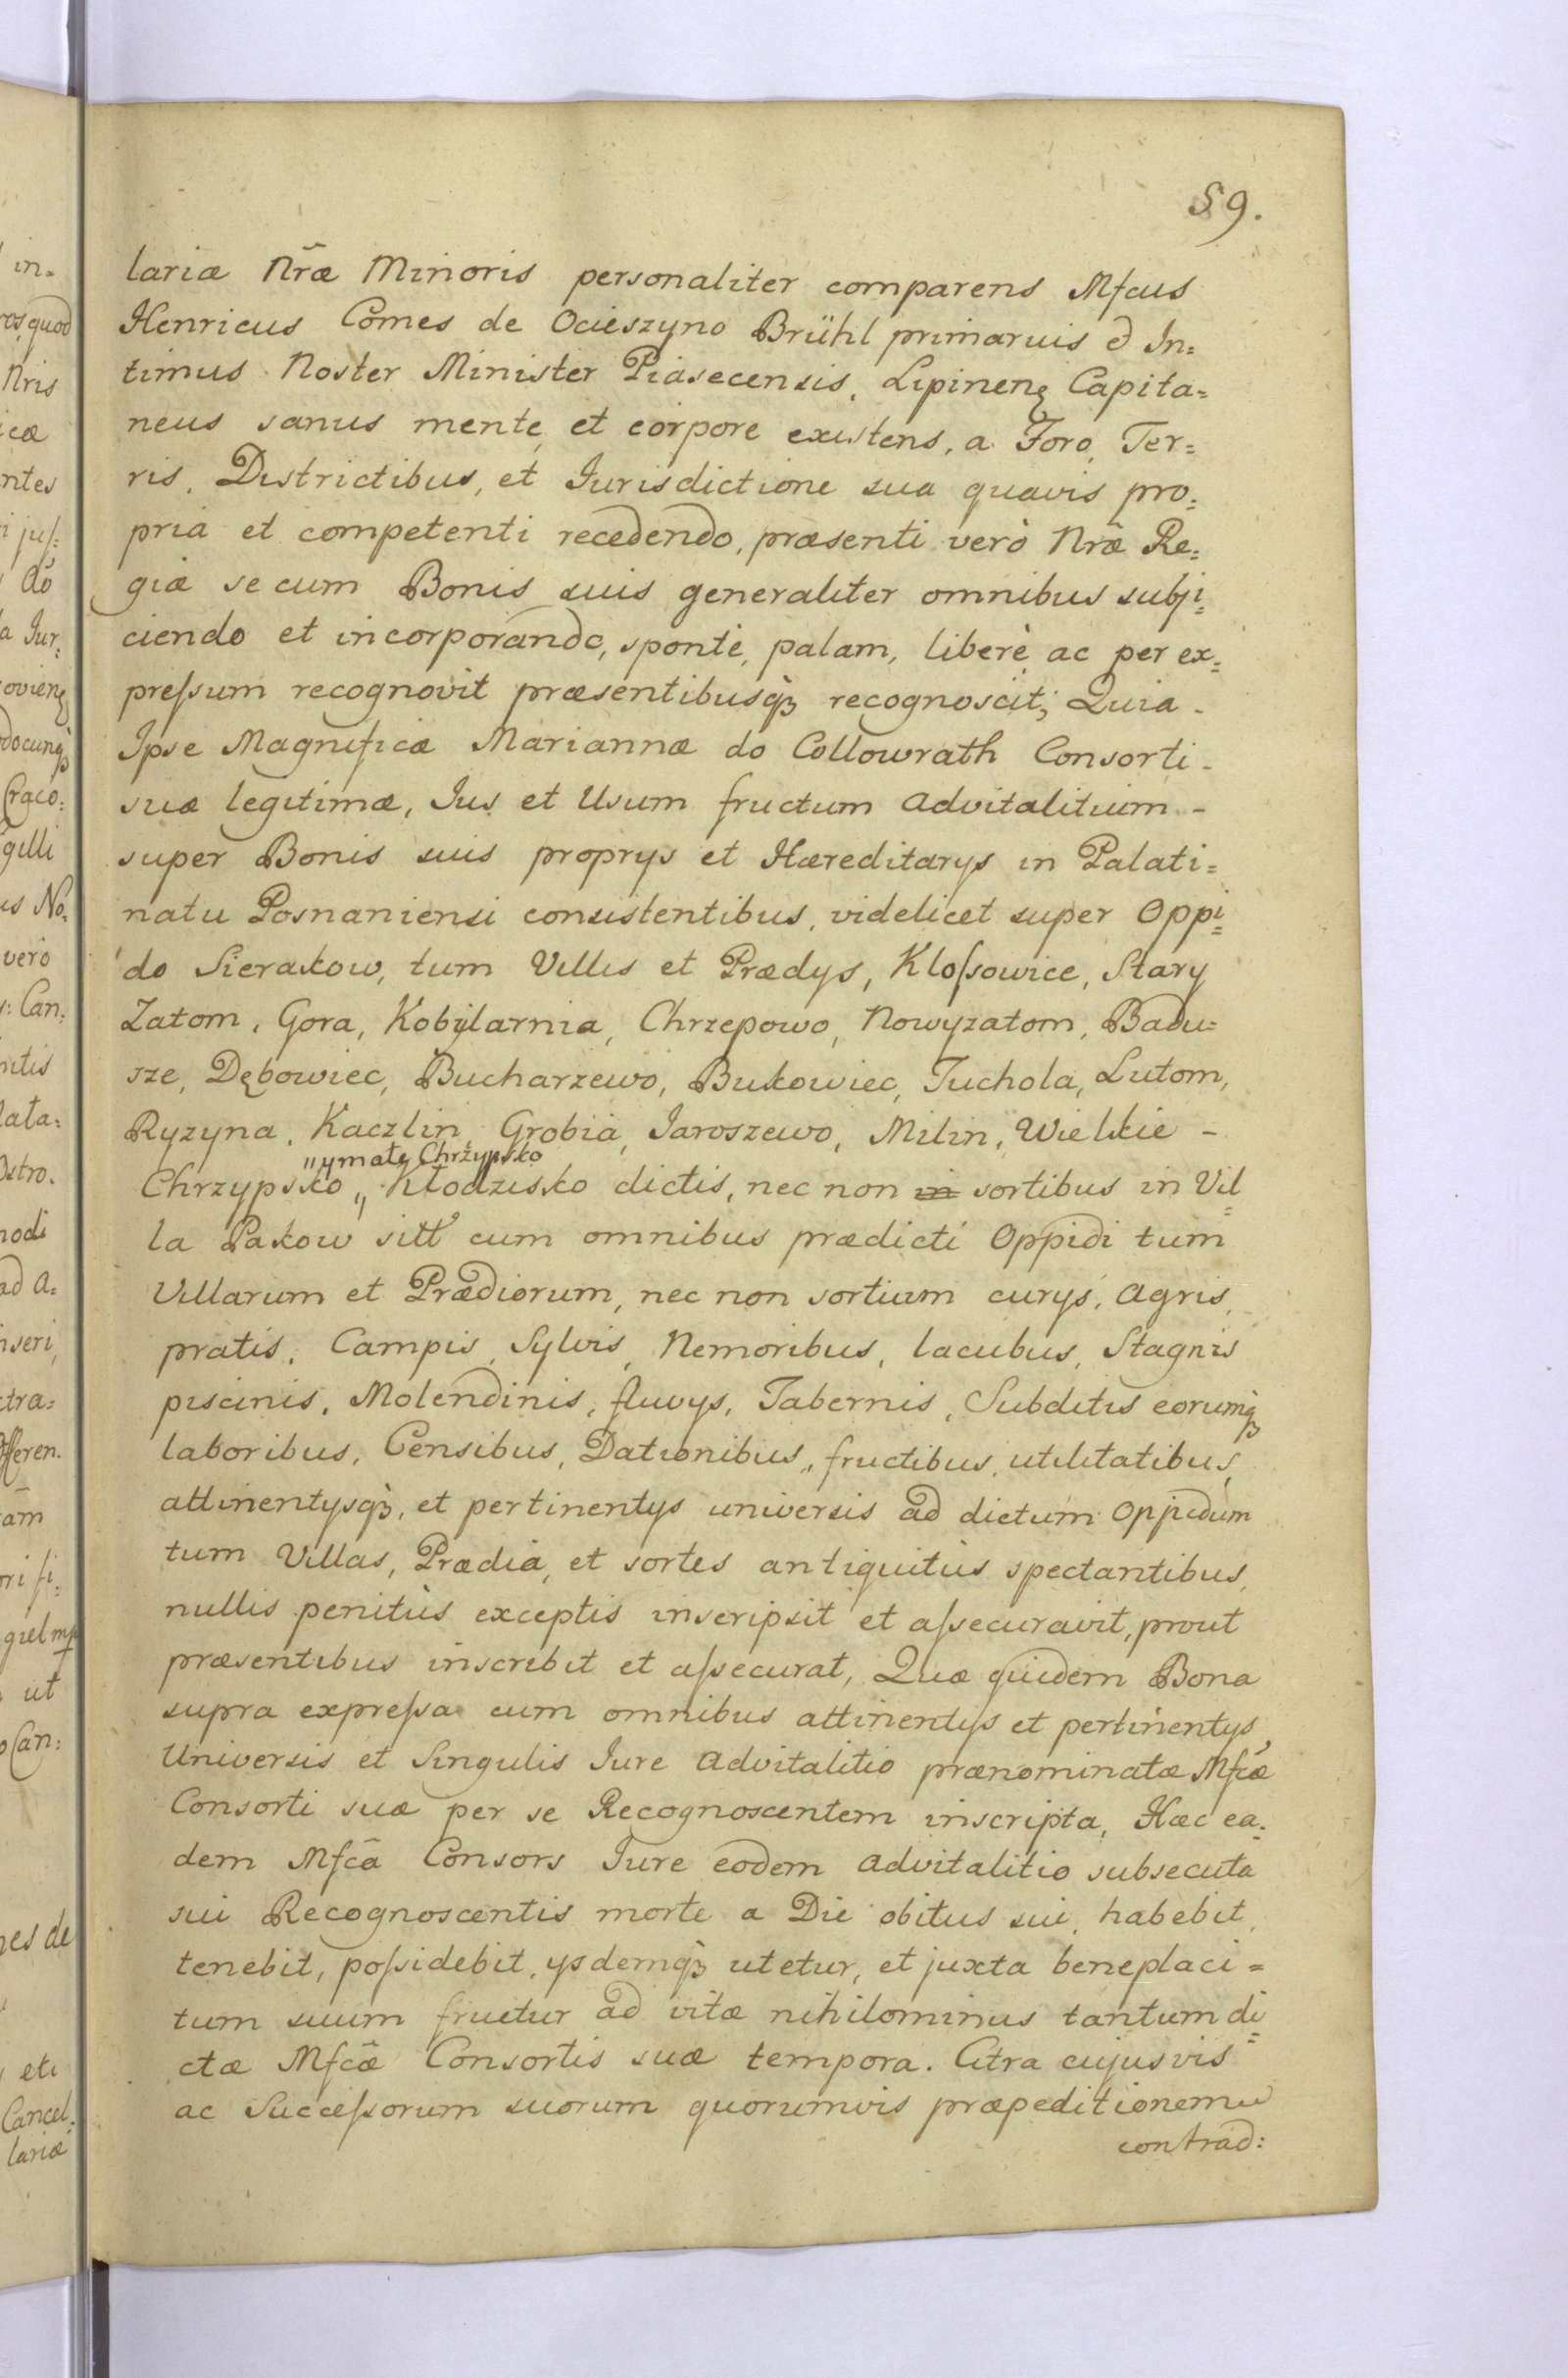 59.
lariæ Nr̃æ Minoris personaliter comparens Mfcus
Henricus Comes de Ocieszyno Brühl primarius & In=
timus Noster Minister Piasecensis, Lipinenę Capita=
neus sanus mente et corpore existens, a Foro, Ter=
ris, Districtibus, et Jurisdictione sua quavis pro=
pria et competenti recedendo, præsenti verò Nr̃æ Re=
giæ se cum Bonis suis generaliter omnibus subji=
ciendo et incorporando, spontè, palam, liberè ac per ex=
preſsum recognovit præsentibusqȝ recognoscit; Quia -
Ipse Magnificæ Mariannæ do Collowrath Consorti -
suæ legitimæ, Jus et Usum fructum advitalitium -
super Bonis suis proprys et Hæreditarys in Palati=
natu Posnaniensi consistentibus, videlicet super Oppi=
do Sierakow, tum Villis et Prædys, Kloſsowice, Stary
Zatom, Gora, Kobylarnia, Chrzepowo, Nowyzatom, Badu=
sze, Dębowiec, Bucharzewo, Bukowiec, Tuchola, Lutom,
Ryzyna, Kaczlin, Grobia, Jaroszewo, Milin, Wielkie -
„ymałę Chrżypsko
Chrzypsko „ Kłodzisko dictis, nec non in sortibus in Vil=
la Pakow sitt cum omnibus prædicti Oppidi tum
Villarum et Prædiorum, nec non sortium curys, agris,
pratis, Campis, Sylvis, Nemoribus, lacubus, Stagnis
piscinis, Molendinis, fluvys, Tabernis, Subditis eorumqȝ
laboribus, Censibus, Dationibus, fructibus, utilitatibus,
attinentysqȝ, et pertinentys universis ad dictum Oppidum
tum Villas, Prædia, et sortes antiquitùs spectantibus,
nullis penitùs exceptis inscripsit et aſsecuravit, prout
præsentibus inscribit et aſsecurat, Quæ quidem Bona
supra expreſsa cum omnibus attinentys et pertinentys,
Universis et Singulis Jure advitalitio prænominatæ Mfcæ
Consorti suæ per se Recognoscentem inscripta, Hæc ea=
dem Mfcã Consors Jure eodem advitalitio subsecuta
sui Recognoscentis morte a Die obitus sui, habebit,
tenebit, poſsidebit, ysdemqȝ utetur, et juxta beneplaci=
tum suum fruetur ad vitæ nihilominus tantum di=
ctæ Mfcæ̃ Consortis suæ tempora. Citra cujusvis
ac Succeſsorum suorum quorumvis præpeditionem
contrad: